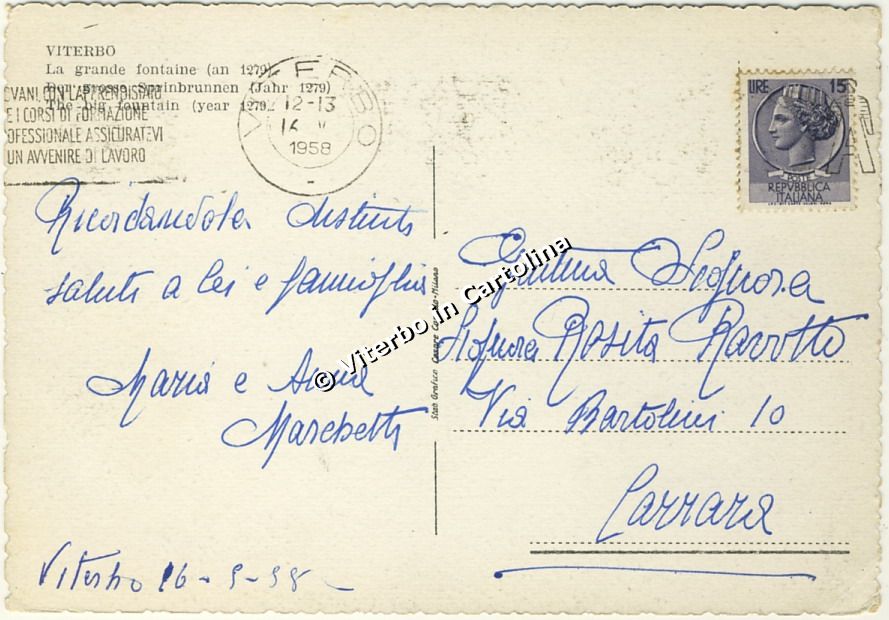 VITERBO
La grande fontaine (an 1279)
Der grosse Springbrunnen (Jahr 1279)
The big fountain (year 1279
VITERBO
12-13
1958
OVANI, CON L'APPRENDISTATO
E I CORSI DI FORMAZIONE
OFESSIONALE ASSICURATEVI
UN AVVENIRE DI LAVORO
LIRE 15
POSTE
REPVBBLICA
ITALIANA
Ricordandola distinti
saluti a lei e famiglia
Maria e Anna
Marchetti
Viterbo 16-5-58
Stab. Grafico Cesare Milano
Gentma Signora
Signora Rosita Ravotto
Via Bartolini 10
Carrara
© Viterbo in Cartolina